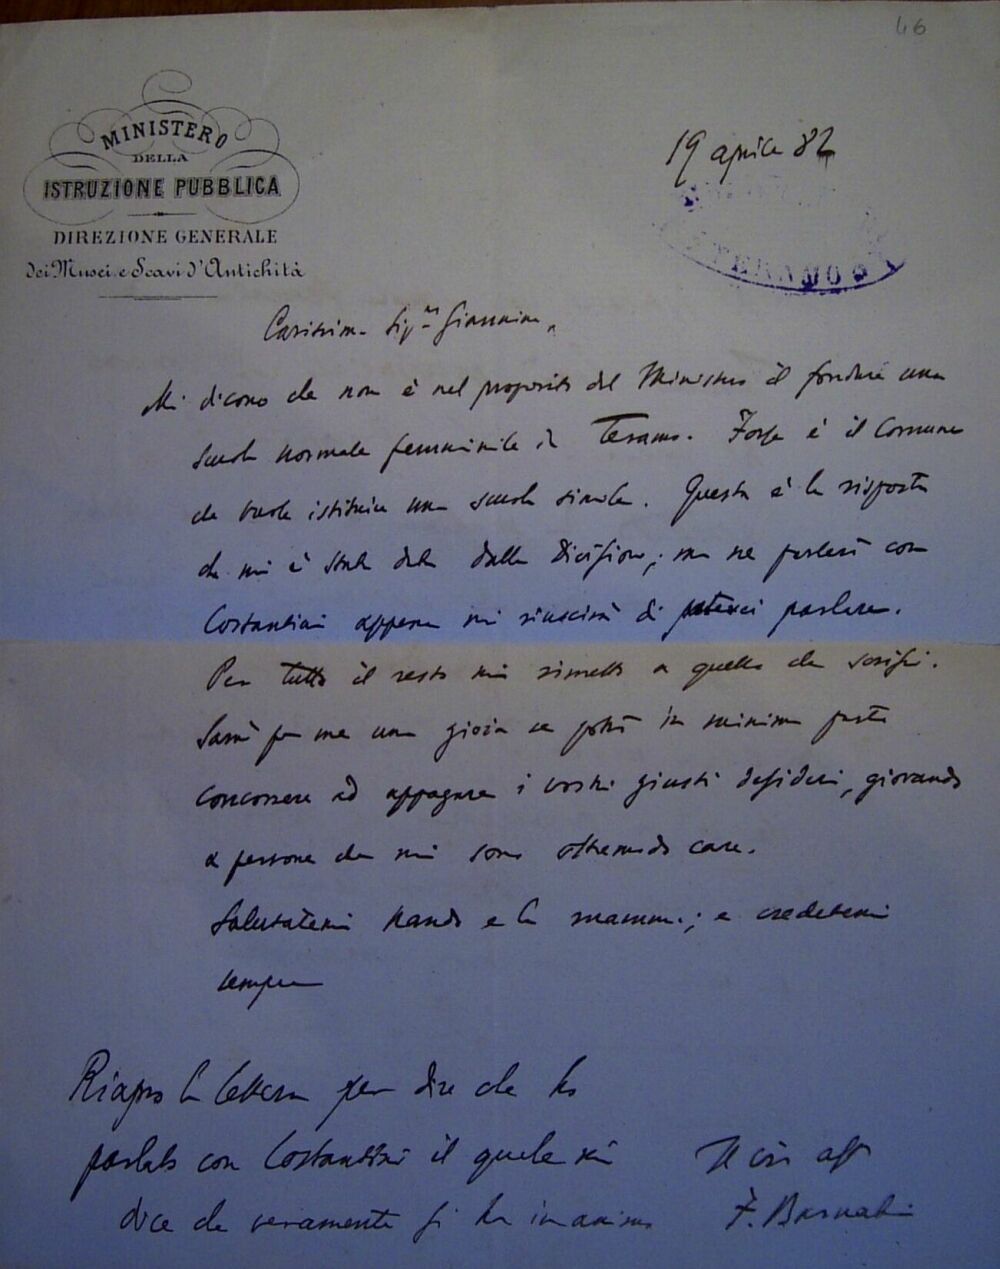 46
MINISTERO
DELLA
ISTRUZIONE PUBBLICA
DIREZIONE GENERALE
dei Musei e Scavi d'Antichità
19 aprile 82
TERAMO
Carissima Sig.na Giannina,
Mi dicono che non è nel proposito del Ministero il fondare una
scuola normale femminile in Teramo. Forse è il Comune
che vuole istituire una scuola simile. Questa è la risposta
che mi è stata data dalla Divisione; ma ne parlerò con
Costantini appena mi riuscirà di poterci parlare.
Per tutto il resto mi rimetto a quello che scrissi.
Sarà per me una gioia se potrò in minima parte
concorrere ad appagare i vostri giusti desideri, giovando
a persone che mi sono oltremodo care.
Salutatemi Nando e la mamma; e credetemi
sempre
Riapro la lettera per dire che ho
parlato con Costantini il quale mi
dice che veramente si ha in animo
aff
F. Barnabei